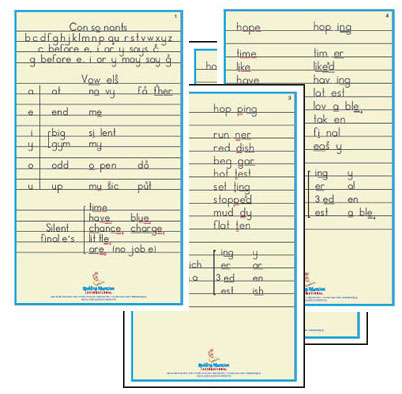 1
Con so nants
b c d f g h j k l m n p qu r s t v w x y z
c before e, i or y says c
g before e, i or y may say g
Vow els
a at na vy fa ther
e end me
i big si lent
y gym my
o odd o pen do
u up mu sic put
Silent final e's
time
have blue
chance charge
lit tle
are (no job e)
Spalding Education
INTERNATIONAL
4
hope hop ing
time tim er
like liked
have hav ing
lat est
lov a ble
tak en
fi nal
eas y
ing y
er al
3 ed en
est a ble
ho
3
hop ping
run ner
red dish
beg gar
hot test
set ting
stopped
mud dy
flat ten
ing y
ich er or
a 3 ed en
est ish
Spalding Education
INTERNATIONAL